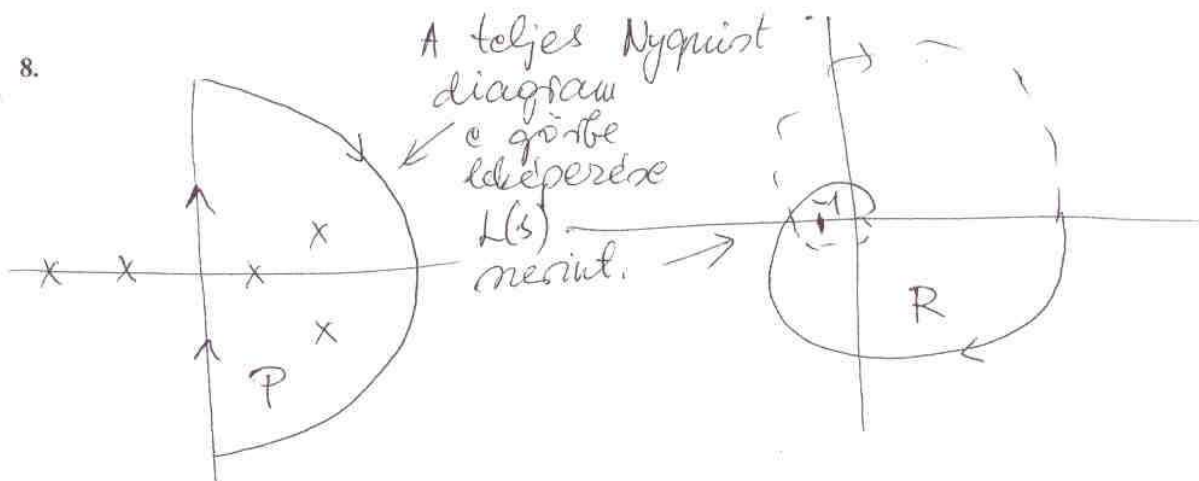 8.
A teljes Nyquist
diagram
e görbe
leképezése
L(s)
szerint.
-1
P
R